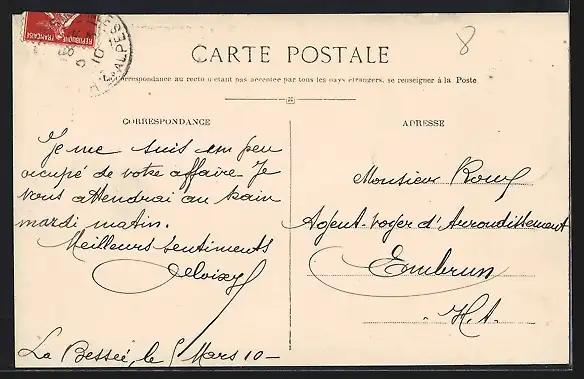 8
RÉPUBLIQUE FRANÇAISE
CARTE POSTALE
La Correspondance au recto n'étant pas acceptée par tous les pays étrangers, se renseigner à la Poste
CORRESPONDANCE
Je me suis un peu
occupé de votre affaire. Je
vous attendrai au train
mardi matin.
Meilleurs sentiments
La Bessée, le 5 Mars 10 -
ADRESSE
Monsieur Roux
Agent-voyer d'Arrondissement
Embrun
H. A.